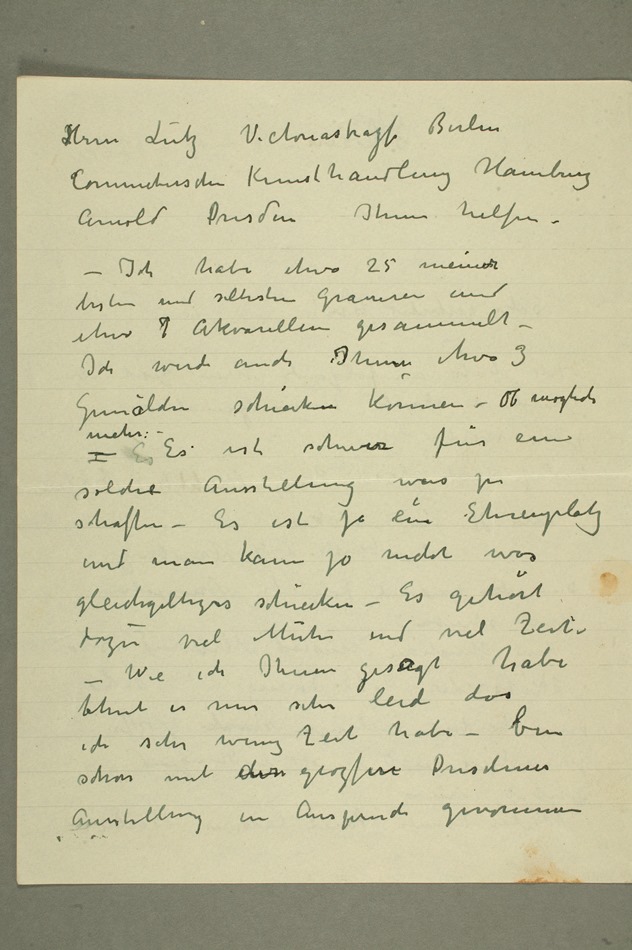 Herrn Lutz Victoriastrasse Berlin
Commetersche Kunsthandlung Hamburg
Arnold Dresden Ihnen helfen.
– Ich habe etwa 25 meiner
besten und seltesten Gravuren und
etwa 7 Akvarellen gesammelt –
Ich werde auch Ihnen etwa 3
Gemälden schicken können – Ob möglich
mehr: –
Es ist schwer für eine
solche Ausstellung was zu
schaffen – Es ist ja ein Ehrenplatz
und man kann jo nicht was
gleichgeltiges schicken – Es gehört
dozu viel Mühe und viel Zeit.
– Wie ich Ihnen gesagt habe
thut es mir sehr leid das
ich sehr wenig Zeit habe – bin
schon mit grozsen Dresdener
Ausstellung in Anspruch genommen